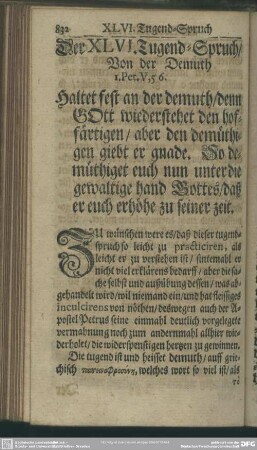 832 XLVI. Tugend-Spruch
Der XLVI. Tugend-Spruch/
Von der Demuth
1. Pet. V, 5 6.
Haltet fest an der demuth/denn
GOtt wiederstehet den hof-
färtigen/ aber den demüthi-
gen giebt er gnade. So de-
müthiget euch nun unter die
gewaltige hand Gottes/daß
er euch erhöhe zu seiner zeit.
ZU wünschen were es/daß dieser tugend-
spruch so leicht zu practiciren, als
leicht er zu verstehen ist/ sintemahl er
nicht viel erklärens bedarff/ aber die sa-
che selbst und ausübung dessen/was ab-
gehandelt wird/wil niemand ein/und hat fleissiges
inculcirens von nöthen/deswegen auch der A-
postel Petrus seine einmahl deutlich vorgelegte
vermahnung noch zum andernmahl allhier wie-
derholet/die widerspenstigen hertzen zu gewinnen.
Die tugend ist und heisset demuth/ auff grie-
chisch ταπεινοφροσύνη, welches wort so viel ist/ als